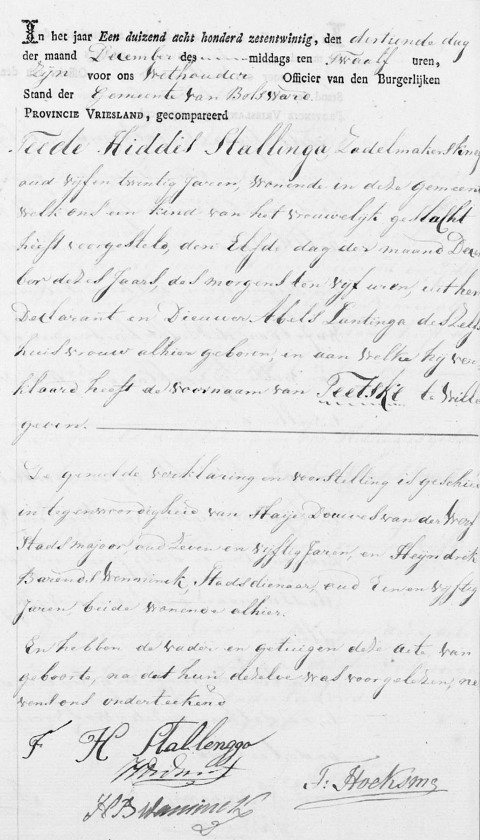 In het jaar Een duizend acht honderd zesentwintig, den dertiende dag
der maand December des middags ten Twaalf uren,
Zijn voor ons Wethouder Officier van den Burgerlijken
Stand der Gemeente van Bolsward
PROVINCIE VRIESLAND, gecompareerd
Feede Hiddes Stallinga Zadelmakers Knegt
oud vijf en twintig Jaren, wonende in deze Gemeen
welk ons een kind van het vrouwelijk geslacht
heeft voorgesteld, den Elfde dag der maand Decem
ber dezes Jaars, des morgens ten vijf uren, uit hem
Declarant en Dieuwer Abels Lantinga deszelfs
huisvrouw alhier geboren, en aan welke hij ver
klaard heeft de voornaam van Feetske te wille
geven.
De gemelde verklaring en voorstelling is geschied
in tegenwoordigheid van Haije Douwes van der Werf
Stadsmajoor, oud Zeven en vijftig Jaren, en Heijndrik
Barends Wennink, Stadsdienaar, oud Een en vijftig
Jaren beide wonende alhier.
En hebben de vader en getuigen deze acte van
geboorte, na dat hun dezelve was voorgelezen, ne
vens ons onderteekend
F H Stallengga
T. Hoeksma